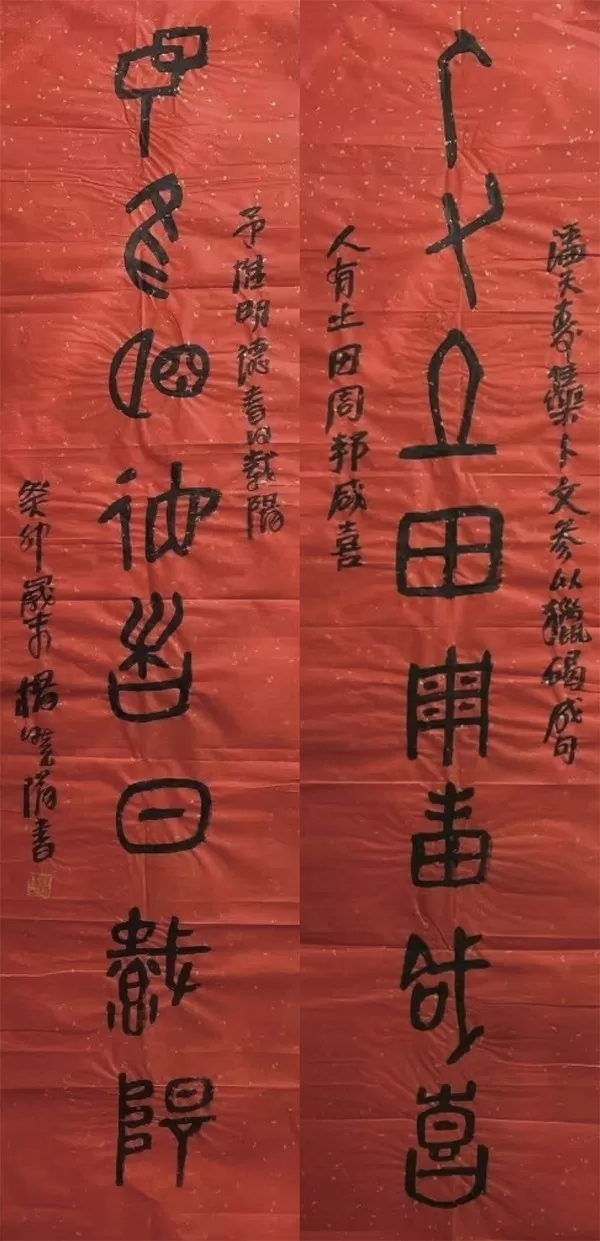 潘天壽集卜文参以獵碣成句
人有土田周邦咸喜
人有土田周邦咸喜
予惟明德春日載陽
予惟明德春日載陽
癸卯歲末楊曉陽書